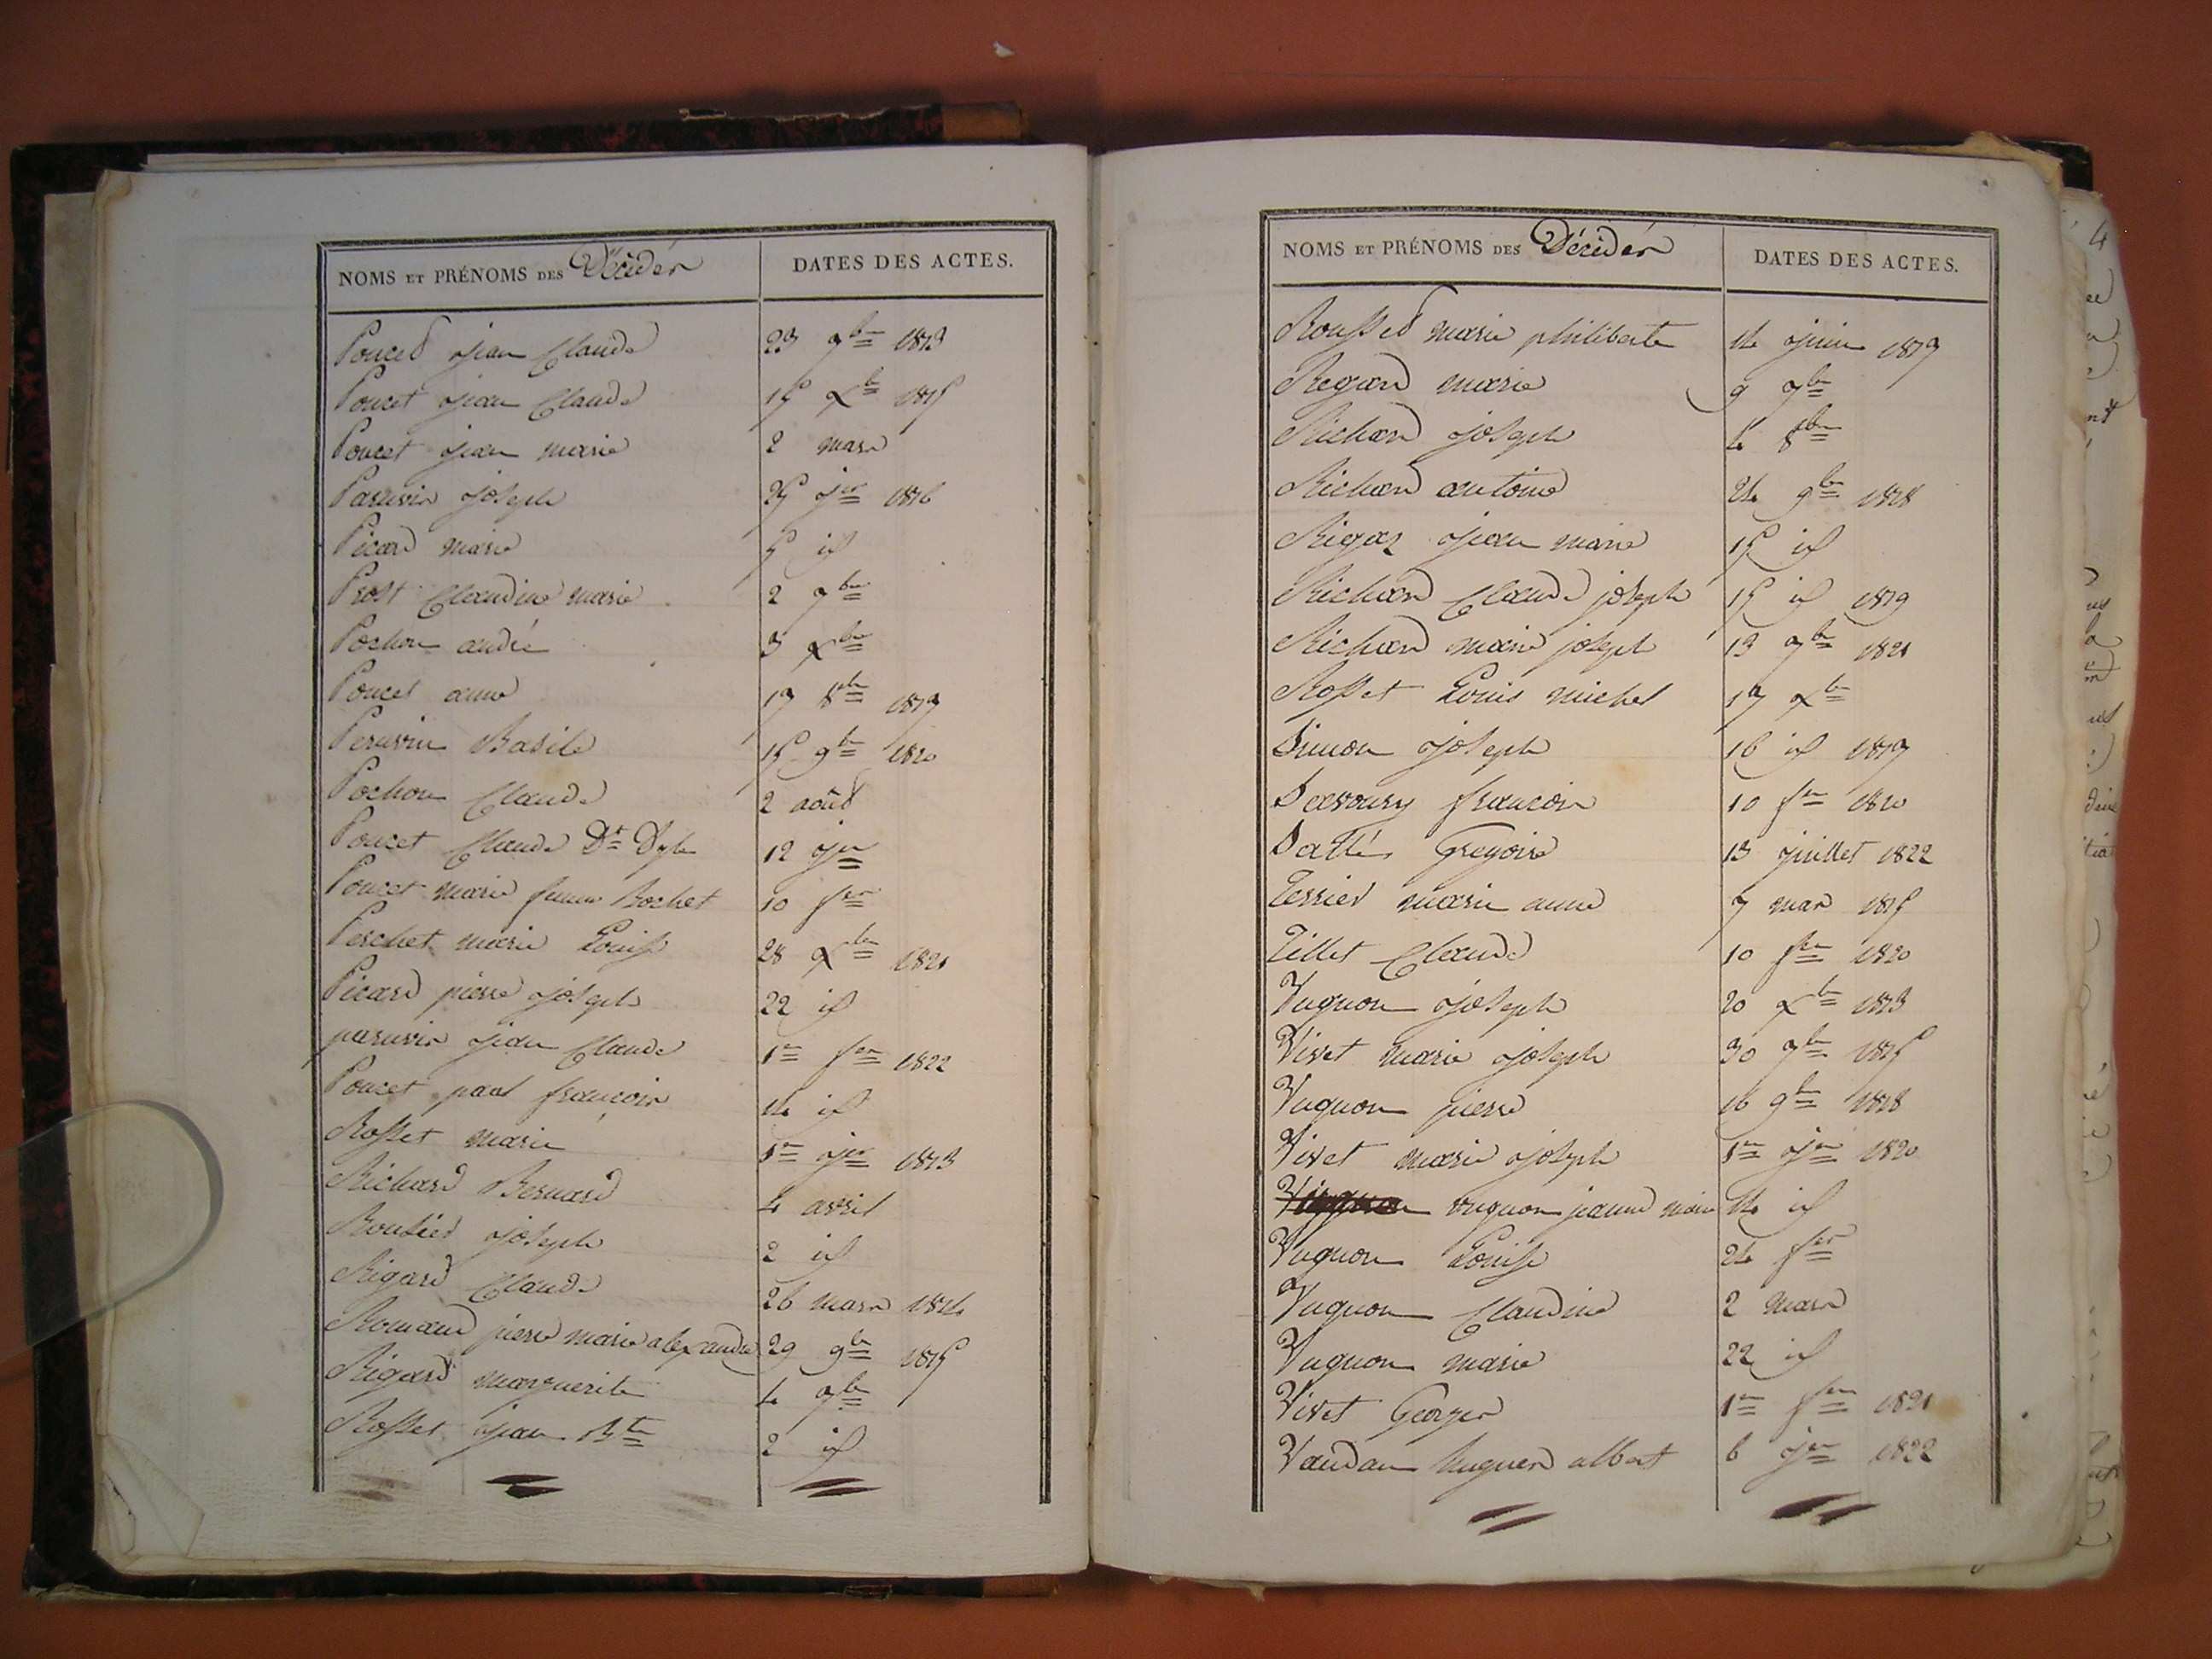 NOMS ET PRÉNOMS DES Décédés DATES DES ACTES.
Poncet jean Claude 23 7bre 1813
Poncet jean Claude 15 Xbre 1815
Poncet jean marie 2 mars
Paruvin joseph 25 jer 1816
Picard marie 5 id
Prost Claudine marie 2 7bre
Pochon andré 3 Xbre
Poncet anne 17 8bre 1817
Peruvin Basile 15 9bre 1820
Pochon Claude 2 août
Poncet Claude Dt Dyle 12 jer
Poncet marie femme Bochet 10 fer
Perchet marie Louise 28 Xbre 1821
Picard pierre joseph 22 id
paruvin jean Claude 1er fer 1822
Poncet paul françois 14 id
Rosset marie 1er jer 1813
Richard Bernard 4 avril
Roulier joseph 2 id
Rigard Claude 26 mars 1814
Romand pierre marie alexandre 29 9bre 1815
Rigard marguerite 4 7bre
Rosset jean Bte 2 id
NOMS ET PRÉNOMS DES Décédés DATES DES ACTES.
Rousset marie philiberte 14 juin 1817
Regard marie 9 7bre
Richard joseph 4 8bre
Richard antoine 24 9bre 1818
Rigaz jean marie 15 id
Richard Claude joseph 15 id 1819
Richard marie joseph 13 7bre 1821
Rosset Louis michel 17 Xbre
Simon joseph 16 id 1817
Savoury françois 10 fer 1820
Grégoire 13 juillet 1822
Terrier marie anne 7 mars 1815
Tillet Claude 10 fer 1820
Vugnon joseph 20 Xbre 1813
Vivet marie joseph 30 7bre 1815
Vugnon pierre 16 9bre 1818
Vivet marie joseph 1er jer 1820
vugnon jeanne marie 14 id
Vugnon Louise 24 fer
Vugnon Claudine 2 mars
Vugnon marie 22 id
Vivet Georges 1er fer 1821
Vaudan hugues albert 6 jer 1822